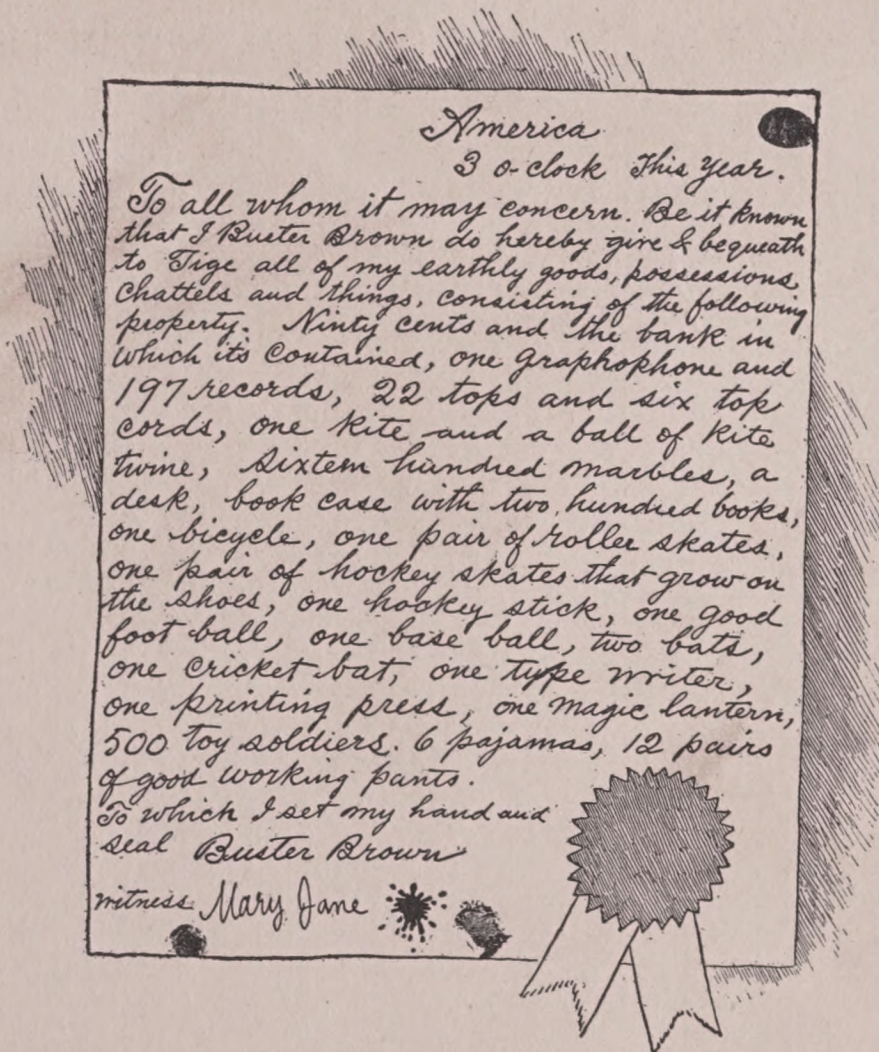 America
3 o-clock This Year.
To all whom it may concern. Be it known
that I Buster Brown do hereby give & bequeath
to Tige all of my earthly goods, possessions,
Chattels and things, consisting of the following
property. Ninty cents and the bank in
which its contained, one graphophone and
197 records, 22 tops and six top
cords, one kite and a ball of kite
twine, sixteen hundred marbles, a
desk, book case with two hundred books,
one bicycle, one pair of roller skates,
one pair of hockey skates that grow on
the shoes, one hockey stick, one good
foot ball, one base ball, two bats,
one cricket bat, one type writer,
one printing press, one magic lantern,
500 toy soldiers. 6 pajamas, 12 pairs
of good working pants.
To which I set my hand and
seal Buster Brown
witness Mary Jane